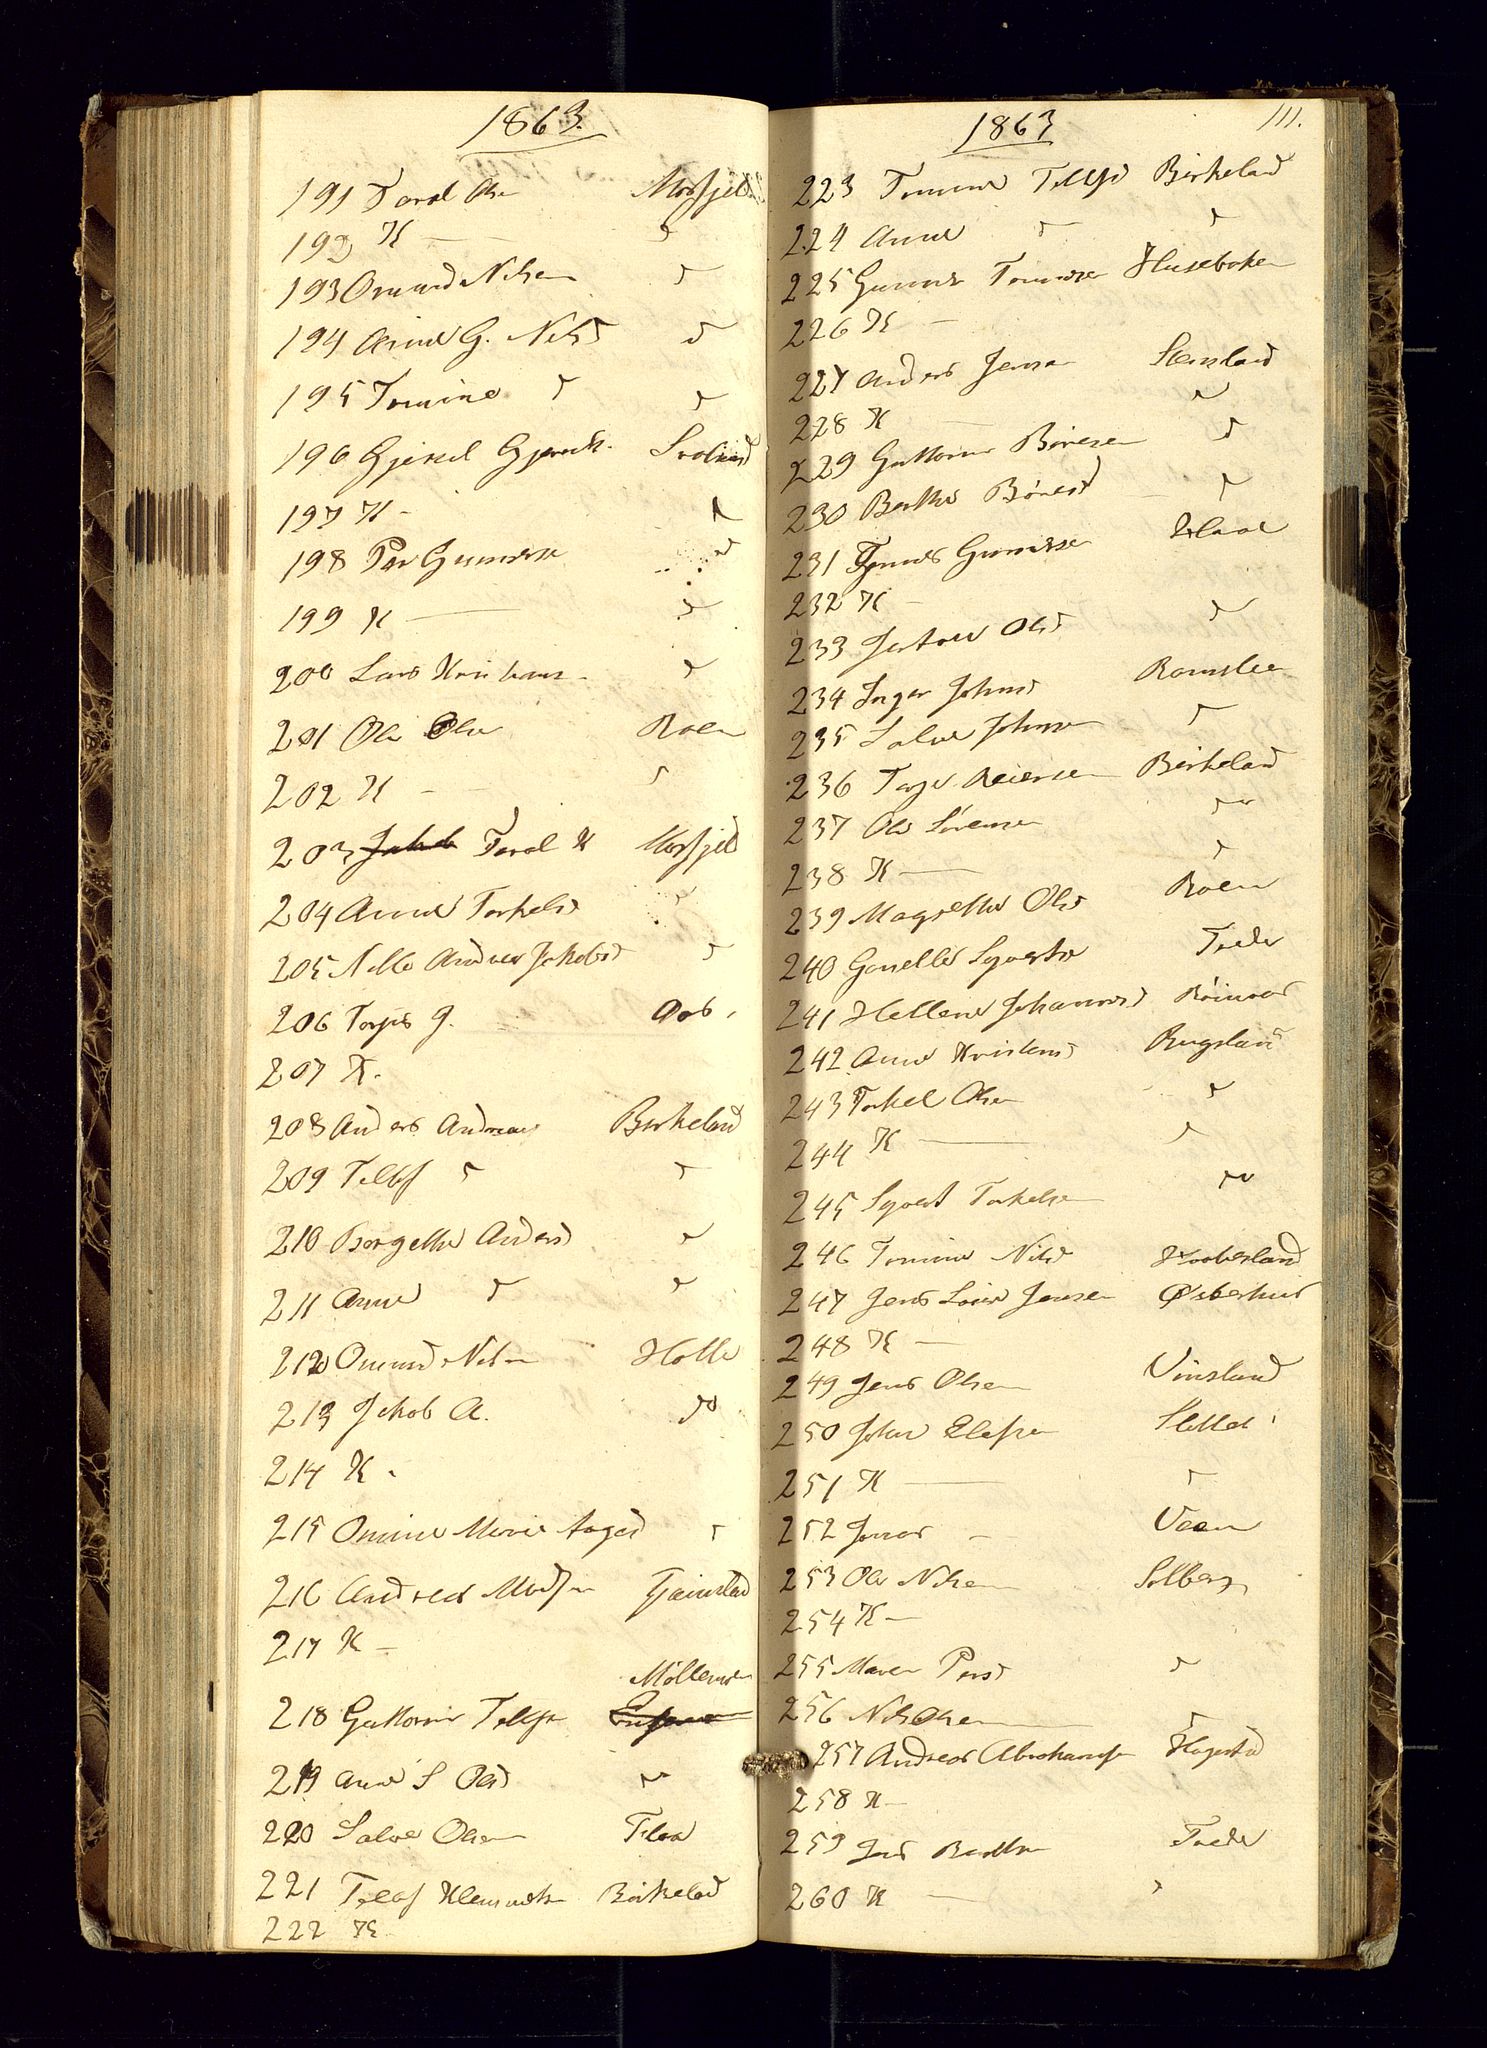 1863.
191 Taral Olsen Mosfjeld
192 K — d
193 Omund Nilsen d
194 Anne G. Nilsd d
195 Tomine d d
196 Gjeruld Gjeruls.
197 K -
198 Per Gunnersen d
199 K — d
200 Lars Kristians. d
201 Ole Olsen Roen
202 K - d
203 Jakob Taral K Mosfjeld
204 Anne Torkelsd
205 Nille Andrea Jakobsd d
206 Torjus J. Aas.
207 K.
208 Anders Andreas Birkeland
209 Tellef d d
210 Borgethe Andersd d
211 Anne d d
212 Omund Nilsen Holle
213 Jakob A. do
214 K.
215 Omine Marie Aagesd d
216 Andreas Madsen
217 K —
Möllemoen
218 Guttorm Tellefs
219 Anne S Olsd d
220 Salve Olsen Flaa
221 Tellef Klemmetsen Birkeland
222 K.
1863
111.
223 Tomine Tellefsd Birkeland
224 Anne d d
225 Gunner Tommesen
226 K —
227 Anders Jensen Stensland
228 K d
229 Guttorm Börresen d
230 Berthe Börresd d
231 Gunnersen
232 K -
233 Olsd d
234 Inger Johnsd Ramslien
235 Salve Johnsen d
236 Tarje Reiersen Birkeland
237 Ole Sörensen d
238 K — d
239 Magrethe Olsd Roen
240 Gunelle Syvertsd
241 Hellene Johannesd
242 Anne Kristensd Rugsland
243 Torkel Olsen d
244 K — d
245 Syvert Torkelsen do
246 Tomine Nilsd
247 Jens Jensen Østerhus
248 K —
249 Jens Olsen Vinsland
250 John Elefsen
251 K — d
252 - Veen
253 Ole Nilsen Solberg
254 K —
255 Maren Persd d
256 Nils Olsen d
257 Andreas Abrahamsen Hagestad
258 K —
259 Jens
260 K - d